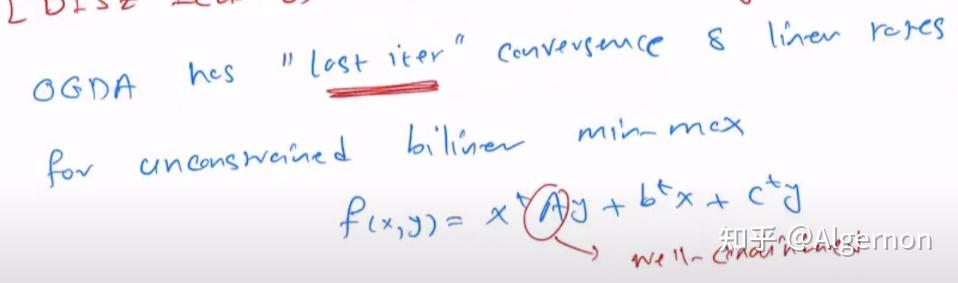 [DISZ
OGDA has "last iter" convergence & linear rates
for unconstrained bilinear min-max
f(x,y) = xᵗAy + bᵗx + cᵗy
well-conditioned
知乎 @Algernon